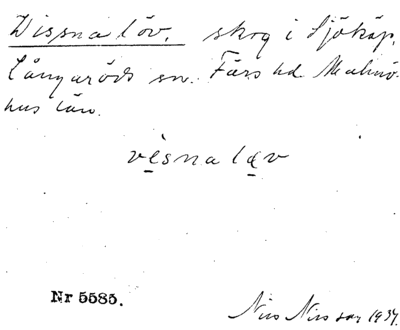 Wissna löv. skog i Sjökåp,
Långaröds sn. Färs hd. Malmö-
hus län.
vesnaləv
Nr 5585.
Nils Nilsson 1934.